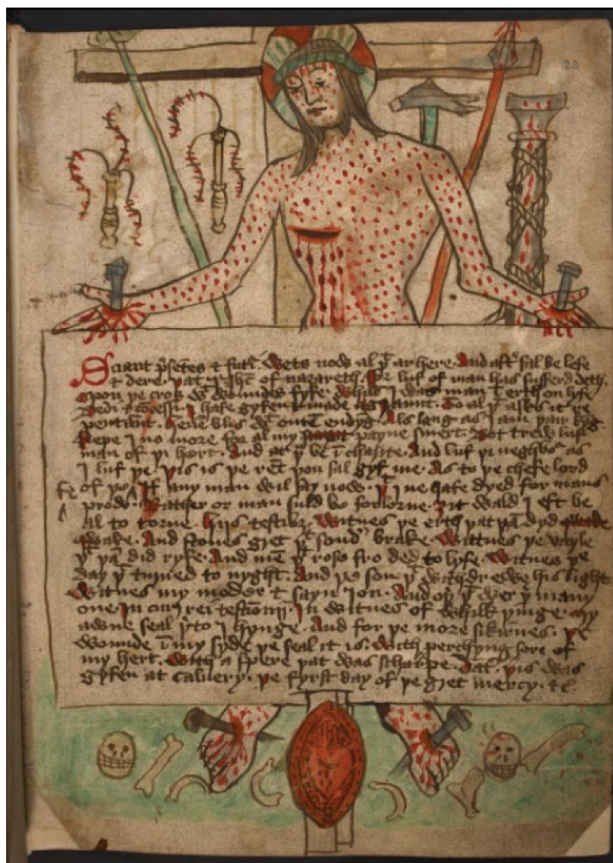 23
Sciant p̄sētes & futī. Wets now al þᵗ ar here. And aftʳ sal be lefe
& dere. þat I ihc̄ of nazareth. ffor luf of man has sufferd deth.
Opon þe cros wᵗ wowndes fyfe. Whils I was man ī erth on lyfe
I hafe gyfen & made
pentant. heuē blis wᵗ outē endyg. Als lang as I am þar kyg
Kepe I no more for al my payne smert. Bot trew luf
man of þi hert. And at þᵘ be ī charite. And luf þi neghbur as
I luf þe. þis is þe rēt þou sal gyf me. As to þe chefe lord
of fe If any man wil say now. þᵗ I ne hafe dyed for mans
prow. Rather or man suld be forlorne. ȝit wald I eft be
al to torne. Wytnes þe erth þat þā dyd
qwake. And stones gret þᵗ sond̄ brake. Wittnes þe vayle
þᵗ þā did ryfe. And mē þᵗ rose fro ded to lyfe. Witnes þe
day þᵗ turned to nyght. And þe son þᵗ withdrewe his light
Witnes my moder & saynt Ion. And oþʳ þᵗ wer þʳ many
one. In cuꝰ rei testiōm̄. In witnes of whilk þinge. my
awne seal þʳto I hynge. And for þe more sikirnes. þe
wounde ī my syde þe seal it is. With perchyng sore of
my hert. With a spere þat was scharpe. Dat þis was
gyfen at caluery. þe fyrst day of þe gret mercy. &c